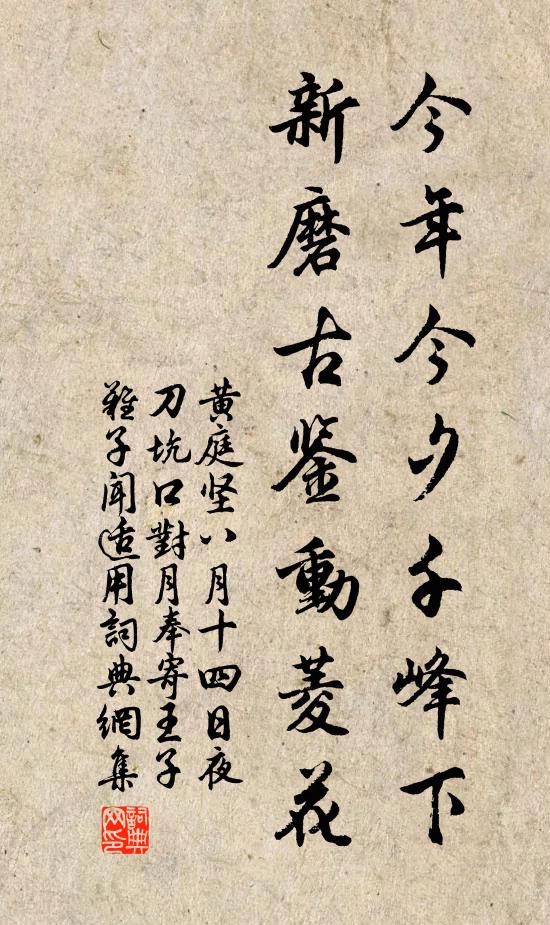 今年今夕千峰下
新磨古鉴動菱花
黄庭坚八月十四日夜
刀坑口對月奉寄王子
難子闻适用詞典網集
詞典
网印